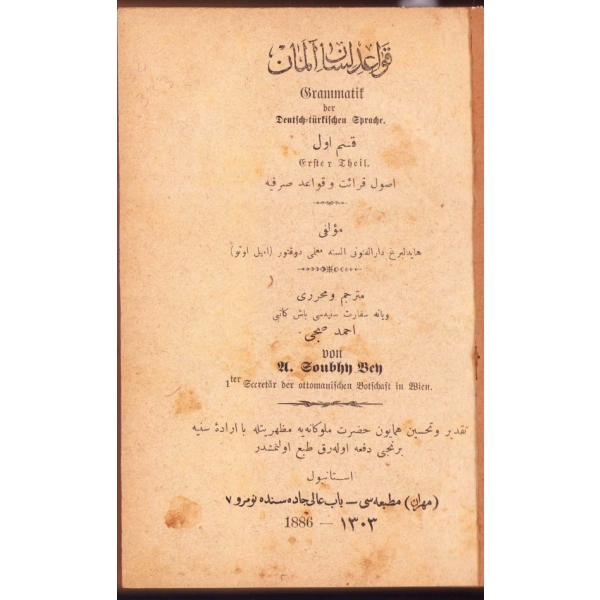 قواعد لسان آلمان
Grammatik
der
Deutsch-türkischen Sprache.
قسم اول
Erster Theil.
اصول قرائت و قواعد صرفیه
مؤلفی
هایدلبرغ دارالفنونی السنه معلمی دوقتور (امیل اوتو)
مترجم و محرری
ویانه سفارت سنیه‌سی باش کاتبی
احمد صبحی
von
A. Soubhy Bey
1ter Secretär der ottomanischen Botschaft in Wien.
تقدیر و تحسین همایون حضرت ملوکانه‌یه مظهریتله با ارادهٔ سنیه
برنجی دفعه اوله‌رق طبع اولنمشدر
استانبول
(مهران) مطبعه‌سی — باب عالی جاده‌سنده نومرو ٧
1886 — ١٣٠٣